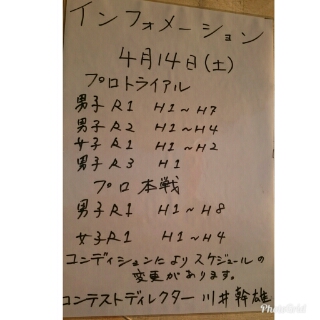 インフォメーション
4月14日(土)
プロトライアル
男子R1 H1~H7
男子R2 H1~H4
女子R1 H1~H2
男子R3 H1
プロ本戦
男子R1 H1~H8
女子R1 H1~H4
コンディションによりスケジュールの
変更があります。
コンテストディレクター 川井幹雄
PhotoGrid